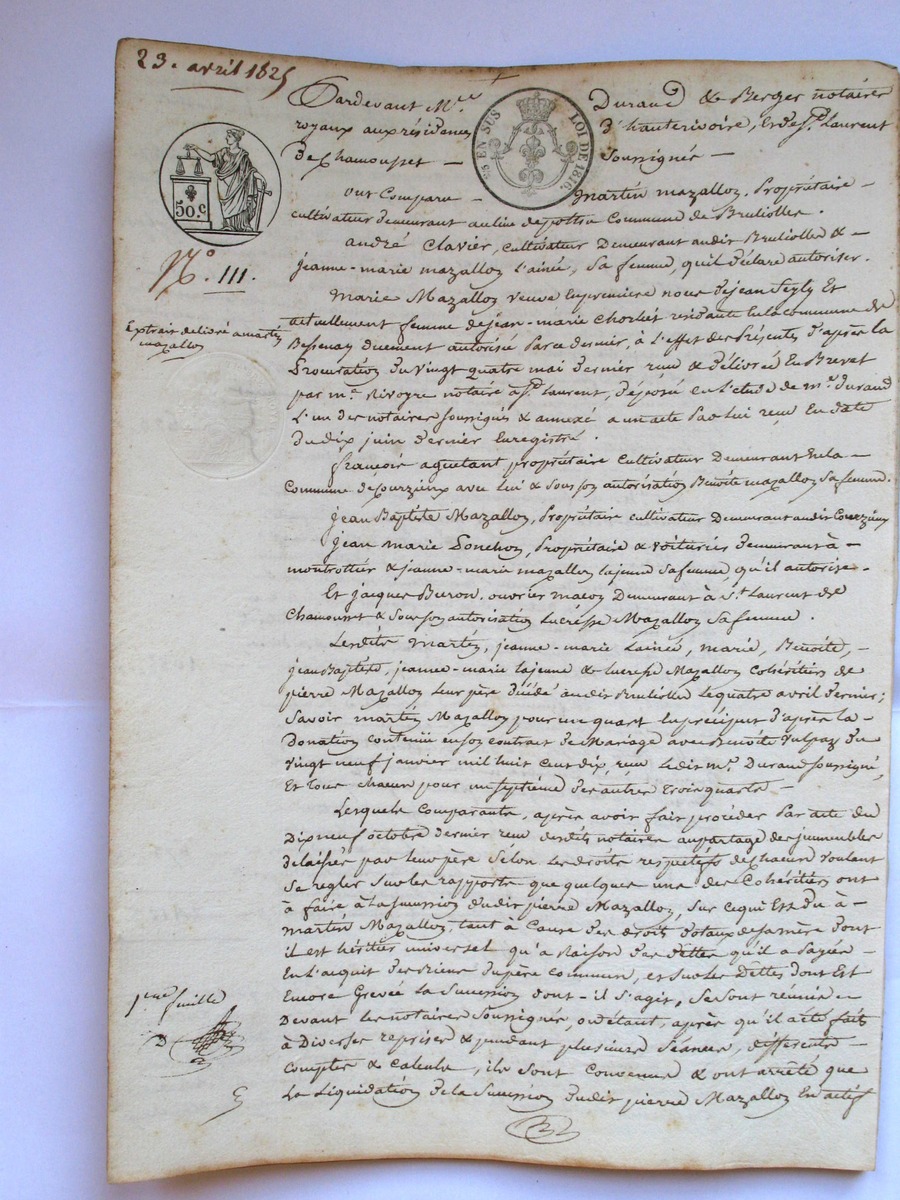 23. avril 1825
Pardevant M.es Durand & Berger notaires
royaux aux résidences d'hauterivoire, & de St. Laurent
de Chamousset — soussignés —
5 c. EN SUS LOI DE 1816.
50.c
ont Comparu — Martin mazallon, Propriétaire —
cultivateur demeurant au lieu de pottu Commune de Brulioles.
andré Clavier, cultivateur Demeurant audit Brulioles & —
jeanne-marie mazallon l'ainée, sa femme, qu'il déclare autoriser.
N.o 111.
Marie Mazallon veuve en premiere nous de jean Et
Extrait délivré a martin
mazallon
actuellement femme de jean-marie Chorlet residante en la commune de
Bessenay duement autorisée Par ce dernier, à L'effet des Présentes d'après la
Procuration du Vingt quatre mai dernier reçue & délivrée En Brevet
par m.e Rivoyre notaire à St. Laurent, déposée en l'étude de m.e durand
L'un des notaires soussignés & annexé a un acte Par lui reçu En date
du dix juin dernier Enregistré.
françois aguetant propriétaire cultivateur Demeurant En la —
Commune de Courzieux avec lui & sous son autorisation Benoite mazallon sa femme.
jean Baptiste Mazallon, Propriétaire cultivateur Demeurant audit Courzieux
jean marie Ponchon, Propriétaire & voiturier demeurant à —
montrottier & jeanne-marie mazallon lajeune sa femme, qu'il autorise —
Et jacques Buron, ouvrier macon Demeurant à St. Laurent de
Chamousset & sous son autorisation Lucrèsse Mazallon sa femme.
Lesdits martin, jeanne-marie Lainée, marie, Benoite, —
jean Baptiste, jeanne-marie lajeune & lucresse Mazallon cohéritiers de
pierre Mazallon leur père décédé audit Brulioles le quatre avril dernier;
Savoir martin Mazallon pour un quart En préciput d'après la —
Donation contenue en son contrat de Mariage avec Benoite Vulpaz du
Vingt neuf janvier mil huit cent dix reçu ledit m.e Durand soussigné,
Et Tous chacun pour un septième des autres trois quarts —
Lesquels Comparants, après avoir fait procéder Par acte du
Dix neuf octobre dernier reçu desdits notaires au partage des jmmeubles
délaissés par leur père Sélon Les droits respectifs de chacun voulant
Se regler sur les rapports que quelques uns des Cohéritiers ont
à faire à la succession dudit pierre Mazallon, Sur ce qui Est du à —
Martin Mazallon, tant à Cause des droits dotaux de sa mère dont
il est héritier universel qu'à Raison des dettes qu'il a Payées
En l'acquit du père commun, et sur les Dettes dont Est
Encore Grevée la Succession dont-il s'agit, Se sont réunis —
1.ere feuille
D
Devant les notaires Soussignés, où étant, après qu'il a été fait
à Diverses reprises & pendant plusieurs Séances, différents —
comptes & calculs, ils sont convenus & ont arrêté que
La Liquidation de la Succession dudit pierre Mazallon En actif